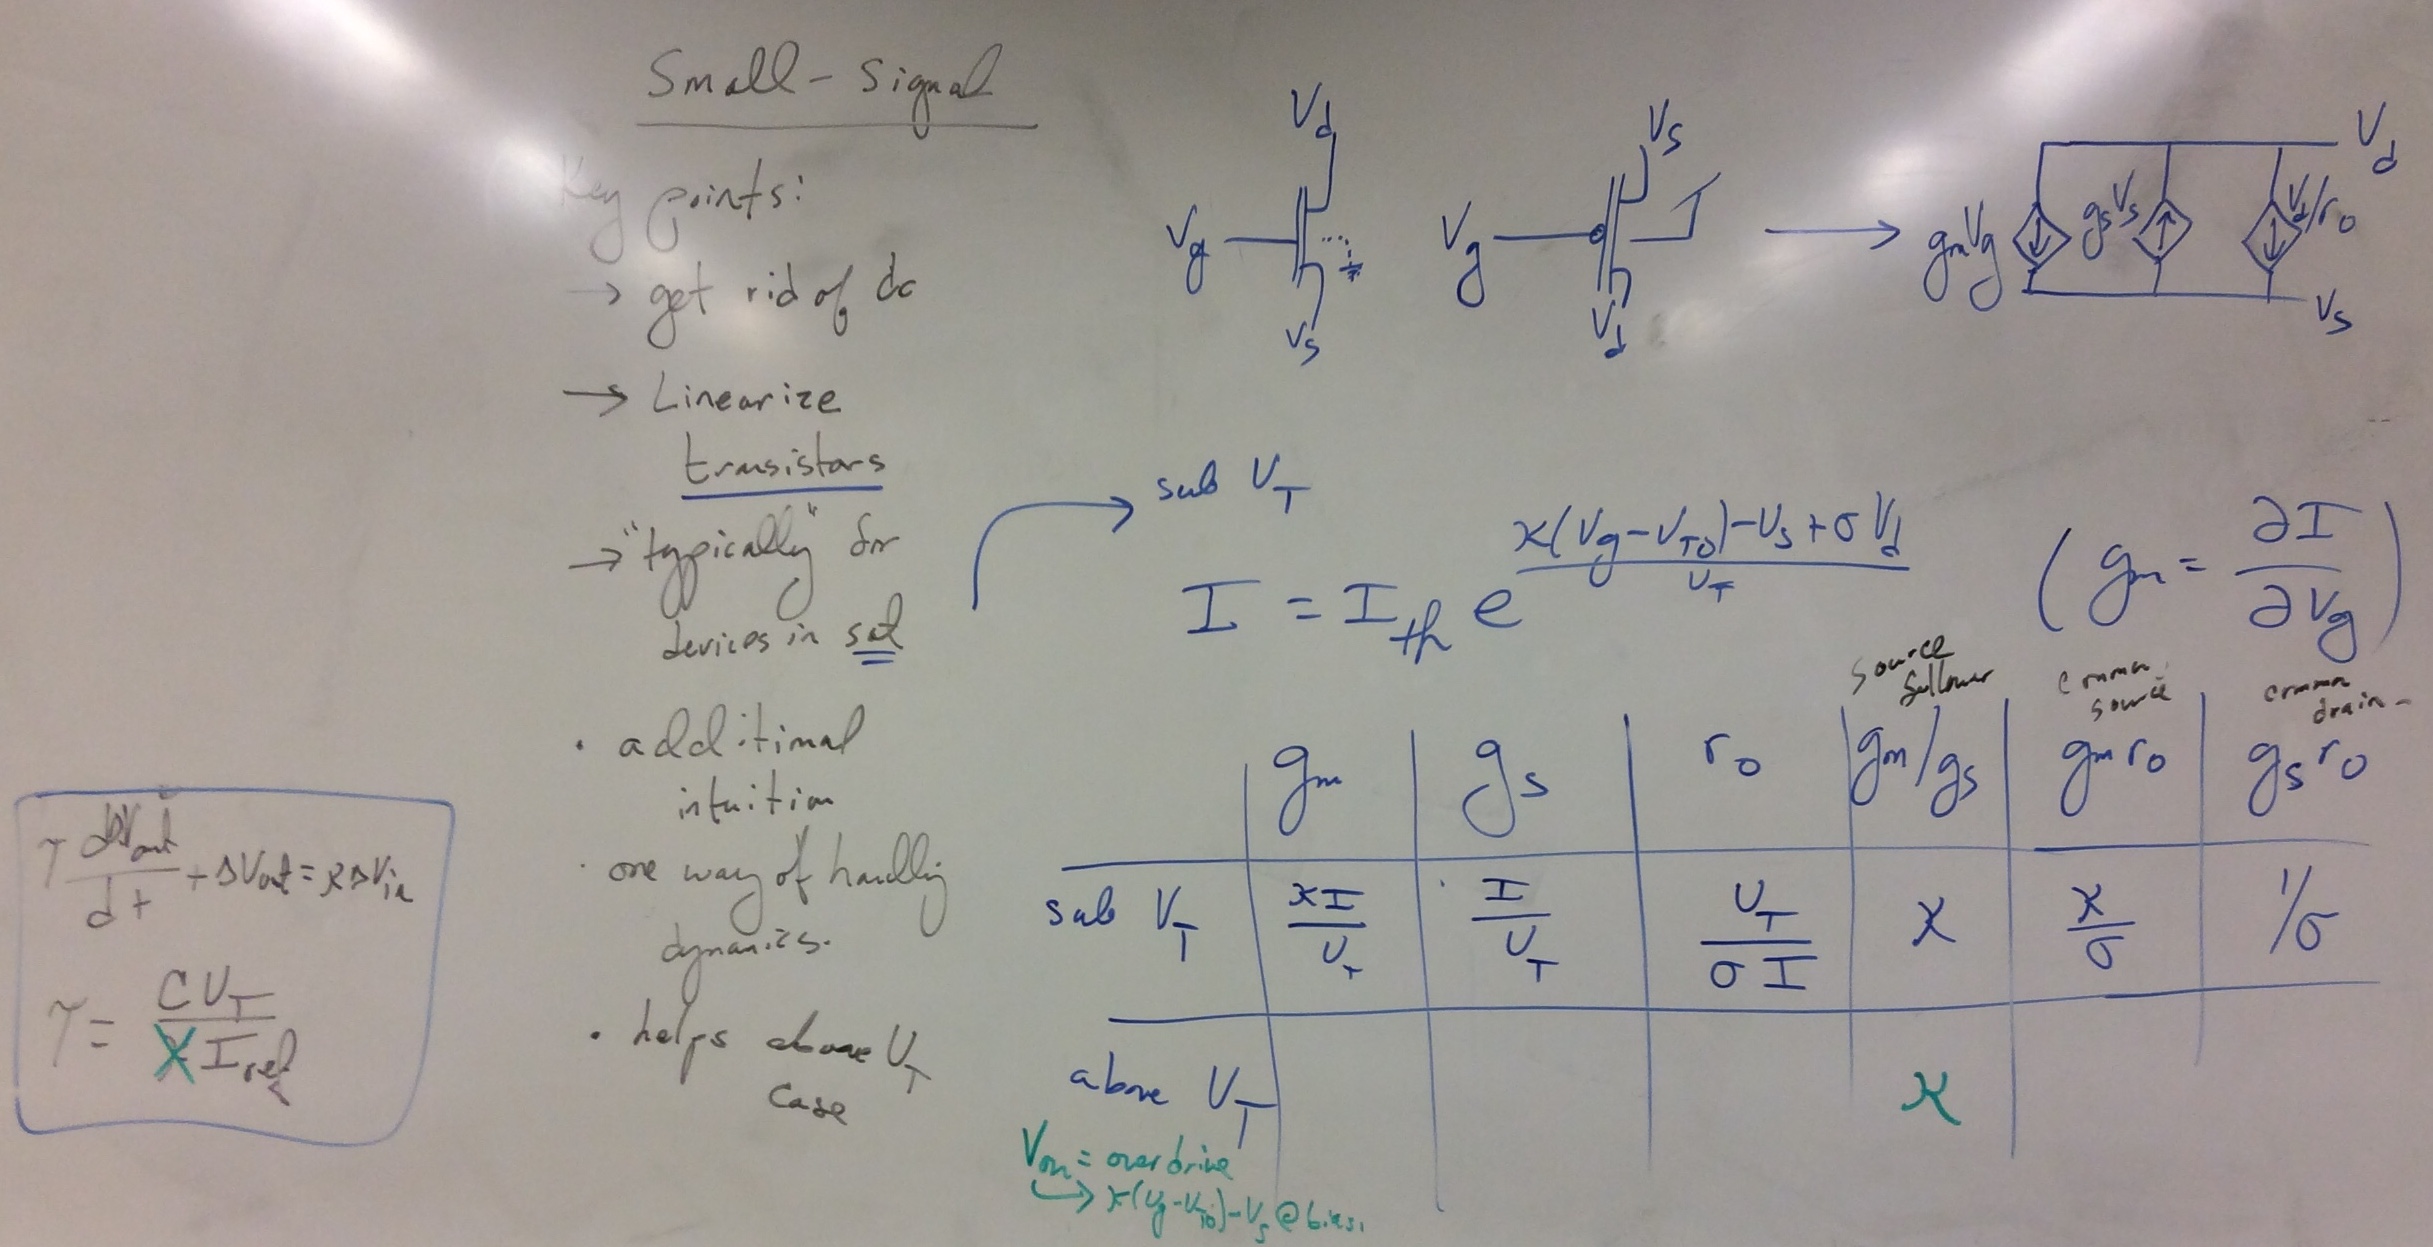 Small-Signal
Key points:
→ get rid of dc
→ Linearize
transistors
→ "typically" for
devices in sat
• additional
intuition
• one way of handling
dynamics.
• helps above V_T
case
τ dΔVout/dt + ΔVout = κΔVin
τ = CU_T / κI_ref
Vd
Vg
Vs
Vs
Vg
Vd
→
Vd
gmVg
gsVs
Vd/ro
Vs
sub V_T
I = I_th e^((κ(Vg-V_T0)-Vs+σVd)/U_T)
(gm = ∂I/∂Vg)
source follower
common source
common drain
gm gs ro gm/gs gmro gsro
sub V_T κI/U_T I/U_T U_T/σI κ κ/σ 1/σ
above V_T κ
Von = overdrive
↪ κ(Vg-V_T0)-Vs @ bias.